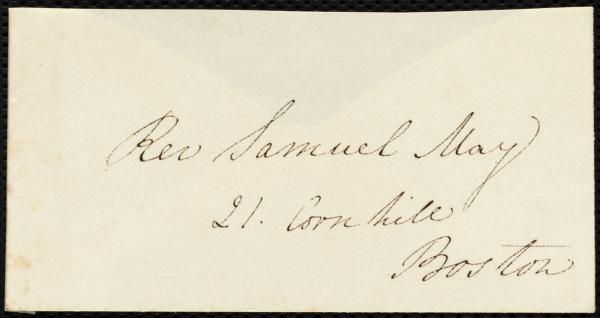 Rev Samuel May
21. Cornhill
Boston